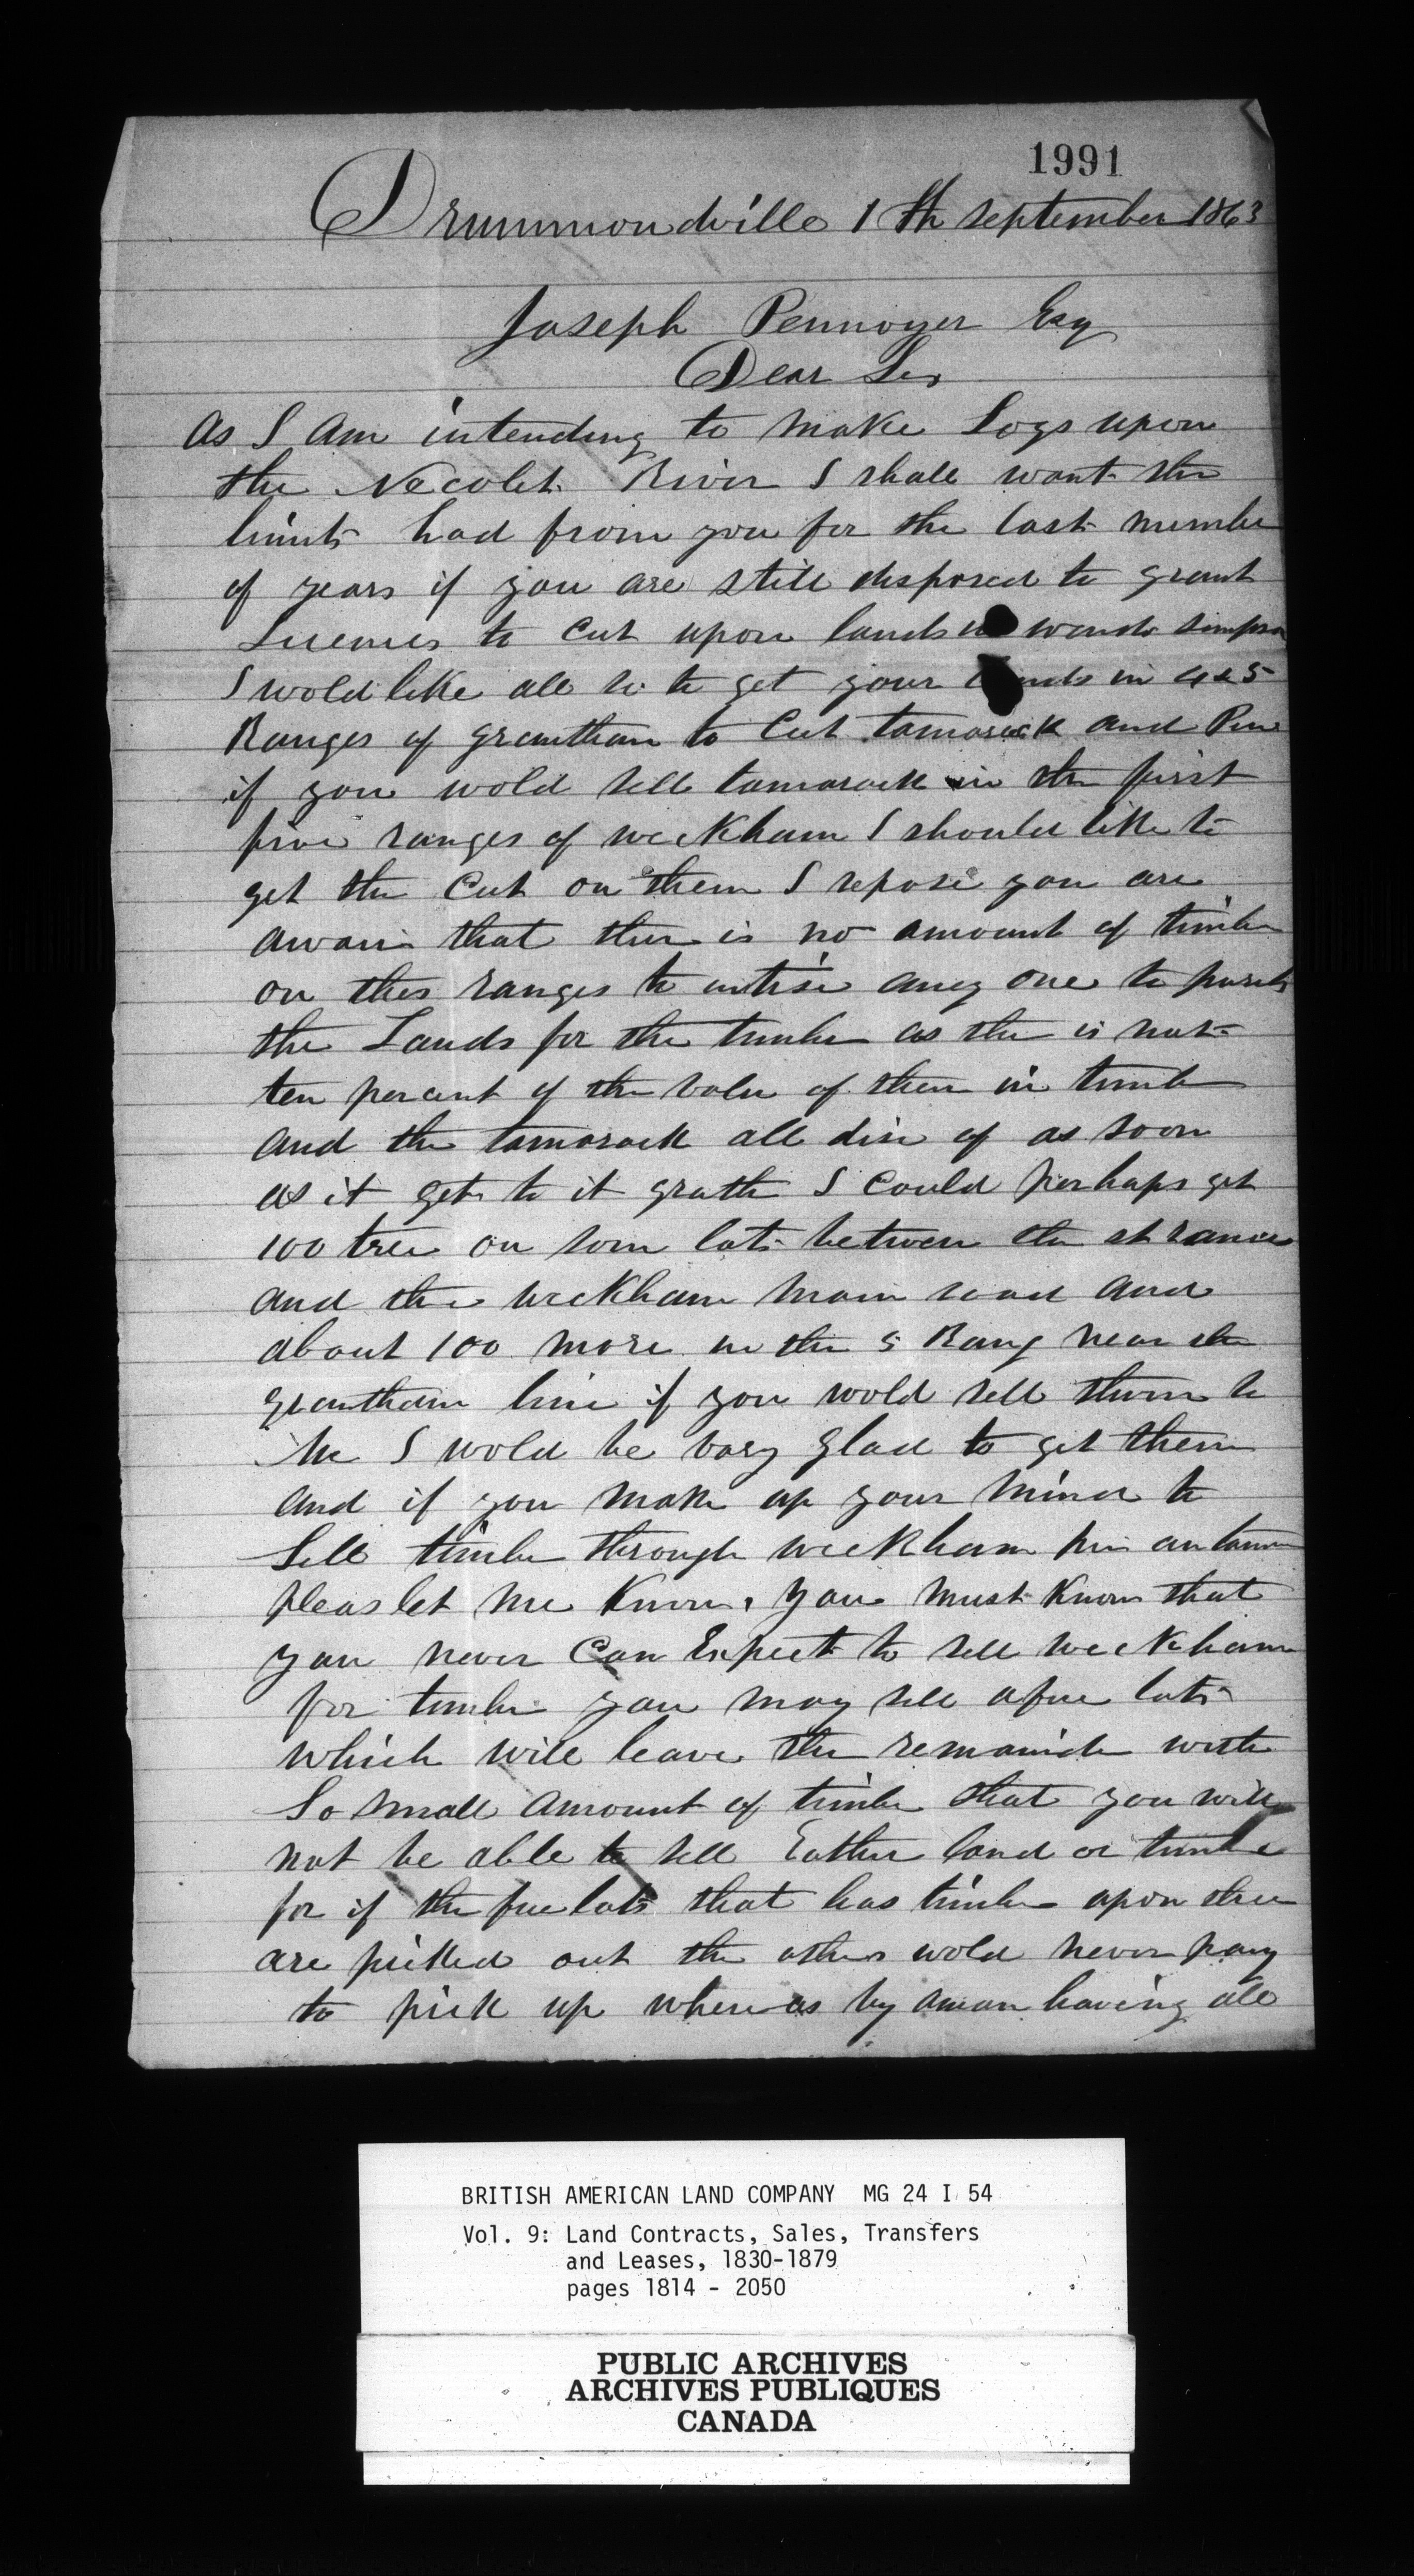 1991
Drummondville 1th september 1863
Joseph Pennoyer Esq
Dear Sir
As I am intending to make Logs upon
the Necolet River I shall want the
limits had from you for the last number
of years if you are still disposed to grant
Licences to cut upon lands
I wold like all so to get your lands in 4 & 5
Ranges of grantham to Cut tamarack and Pine
if you wold sell tamarack in the first
five ranges of weckham I should like to
get the Cut on them I sepose you are
awari that ther is no amount of timber
on thes ranges to intise any one to
the Lands for the timber as ther is not
ten percent of the valu of them in timber
and the tamarack all dise of as soon
as it gets to it grath I could perhaps get
100 tree on som lots between the
and the weckham main road and
about 100 more in the 5 Rang near the
grantham line if you wold sell them to
me I wold be vary glad to get them
and if you make up your mind to
Sell timber through weckham
pleas let me know. you must know that
you never can Expect to sell weckham
for timber you may sell a few lots
which will leave the remainder with
So small amount of timber that you will
not be able to sell Eather land or timber
for if the few lots that has timber upon them
are picked out the others wold never pay
to pick up where as by a man having all
BRITISH AMERICAN LAND COMPANY MG 24 I 54
Vol. 9: Land Contracts, Sales, Transfers
and Leases, 1830-1879
pages 1814 - 2050
PUBLIC ARCHIVES
ARCHIVES PUBLIQUES
CANADA